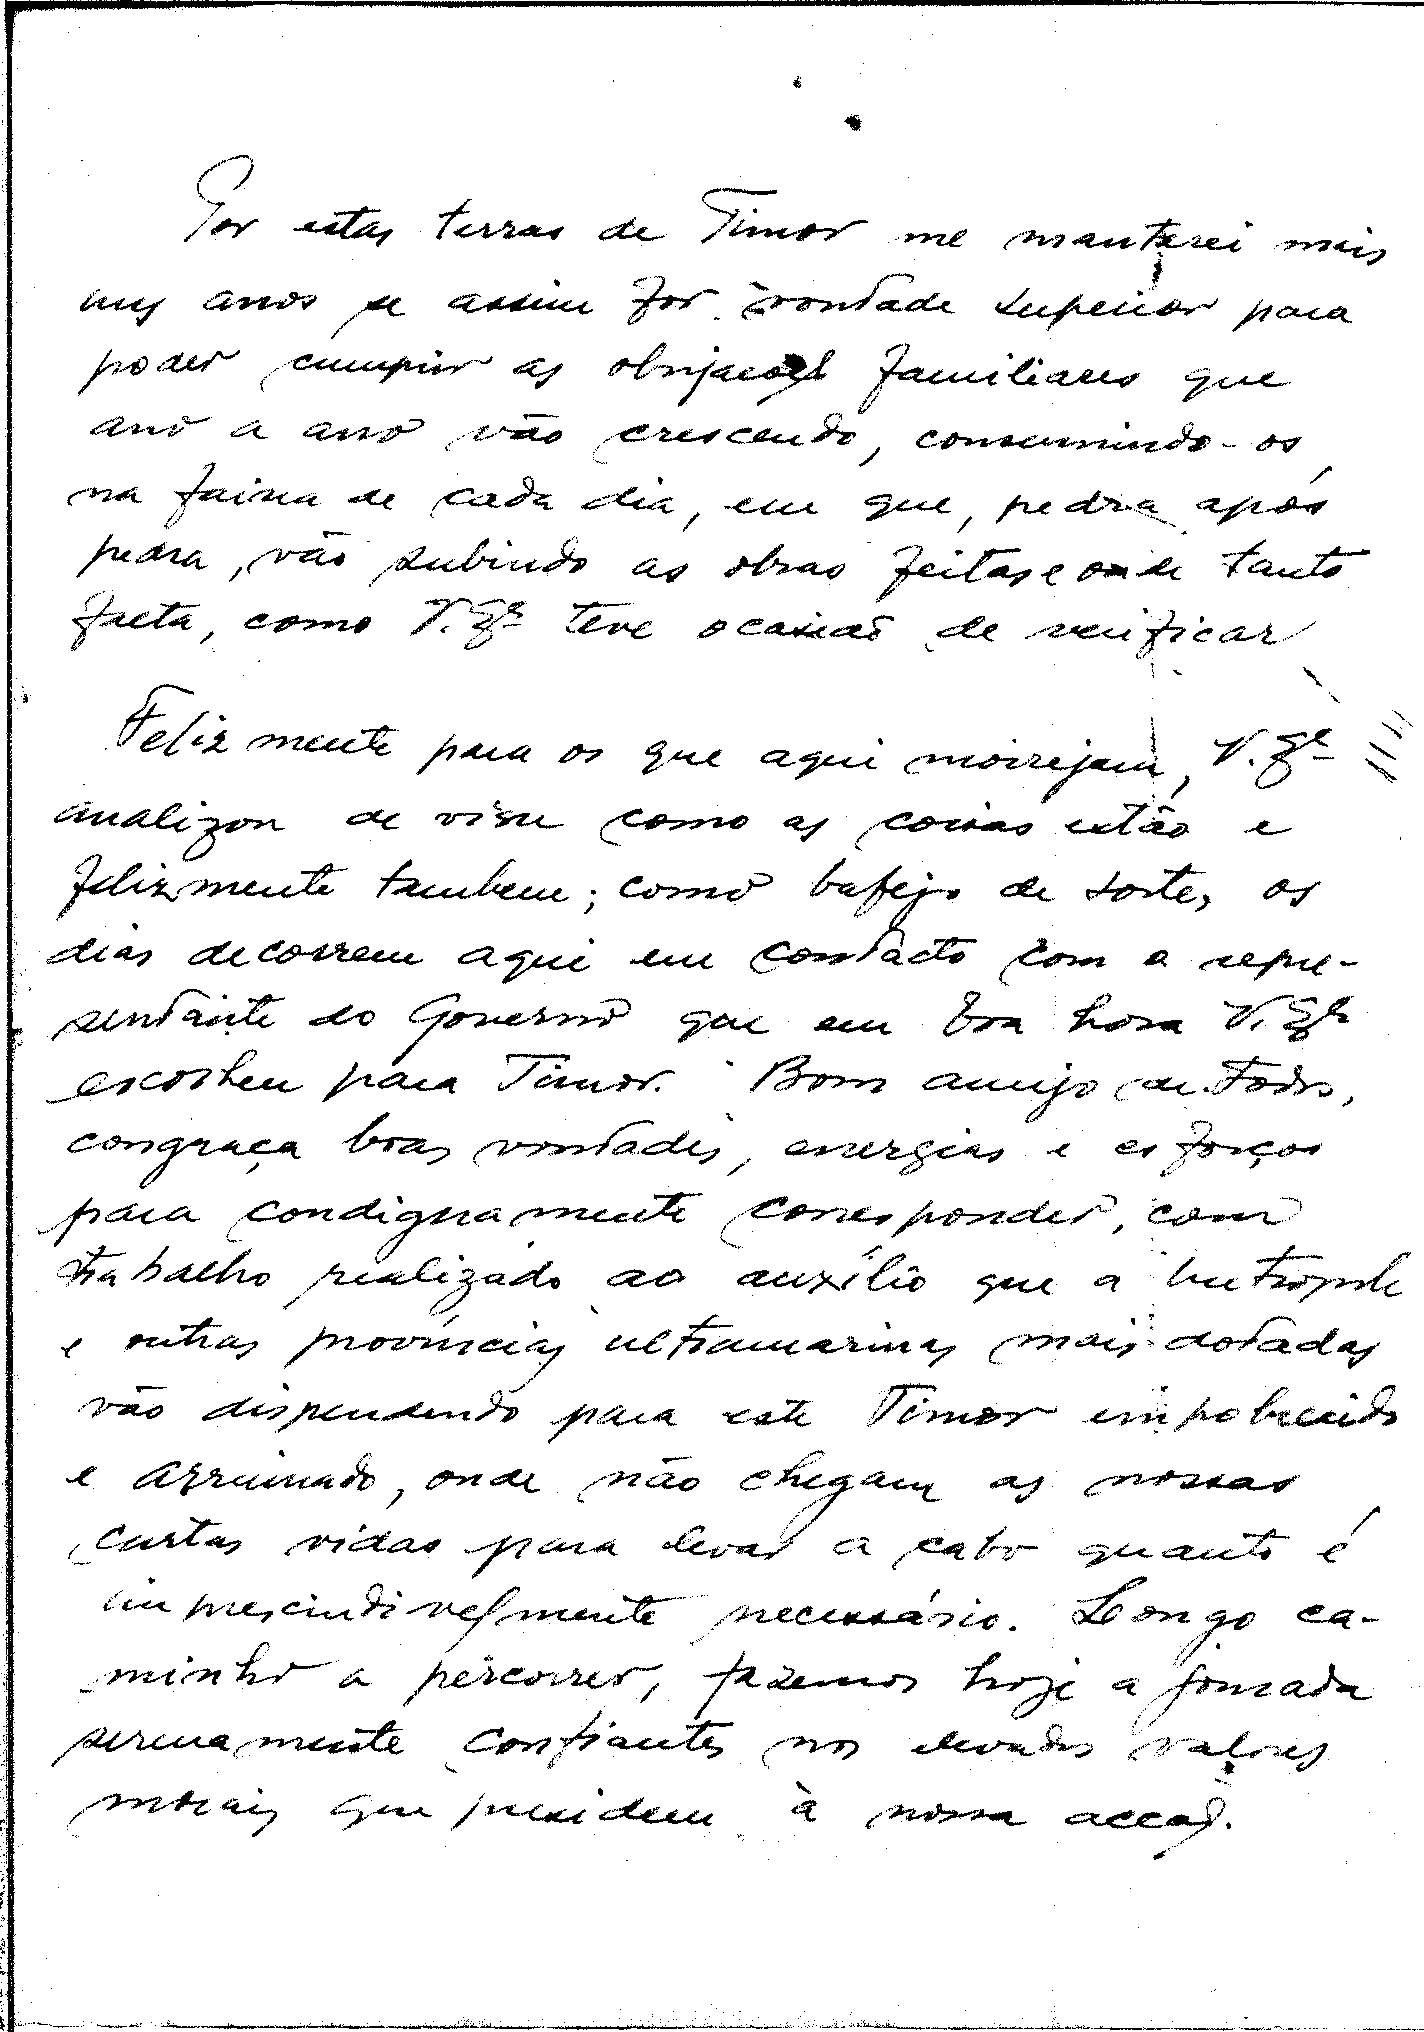 Por estas terras de Timor me manterei mais
uns anos se assim for vontade superior para
poder cumprir as obrigações familiares que
ano a ano vão crescendo, consumindo-os
na faina de cada dia, em que, pedra após
pedra, vão subindo as obras feitas e onde tanto
falta, como V. Exª teve ocasião de verificar
Felizmente para os que aqui moirejam, V. Exª
analizou de visu como as coisas estão e
felizmente tambem; como bafejo de sorte, os
dias decorrem aqui em contacto com o repre-
sentante do Governo que em boa hora V. Exª
escolheu para Timor. Bom amigo de todos,
congraça boas vontades, energias e esforços
para condignamente corresponder, com
trabalho realizado ao auxílio que a Metropole
e outras províncias ultramarinas mais dotadas
vão dispendendo para este Timor empobrecido
e arruinado, onde não chegam as nossas
curtas vidas para levar a cabo quanto é
imprescindivelmente necessário. Longo ca-
minho a percorrer, fazemos hoje a jornada
serenamente confiantes nos elevados valores
morais que presidem à nossa acção.